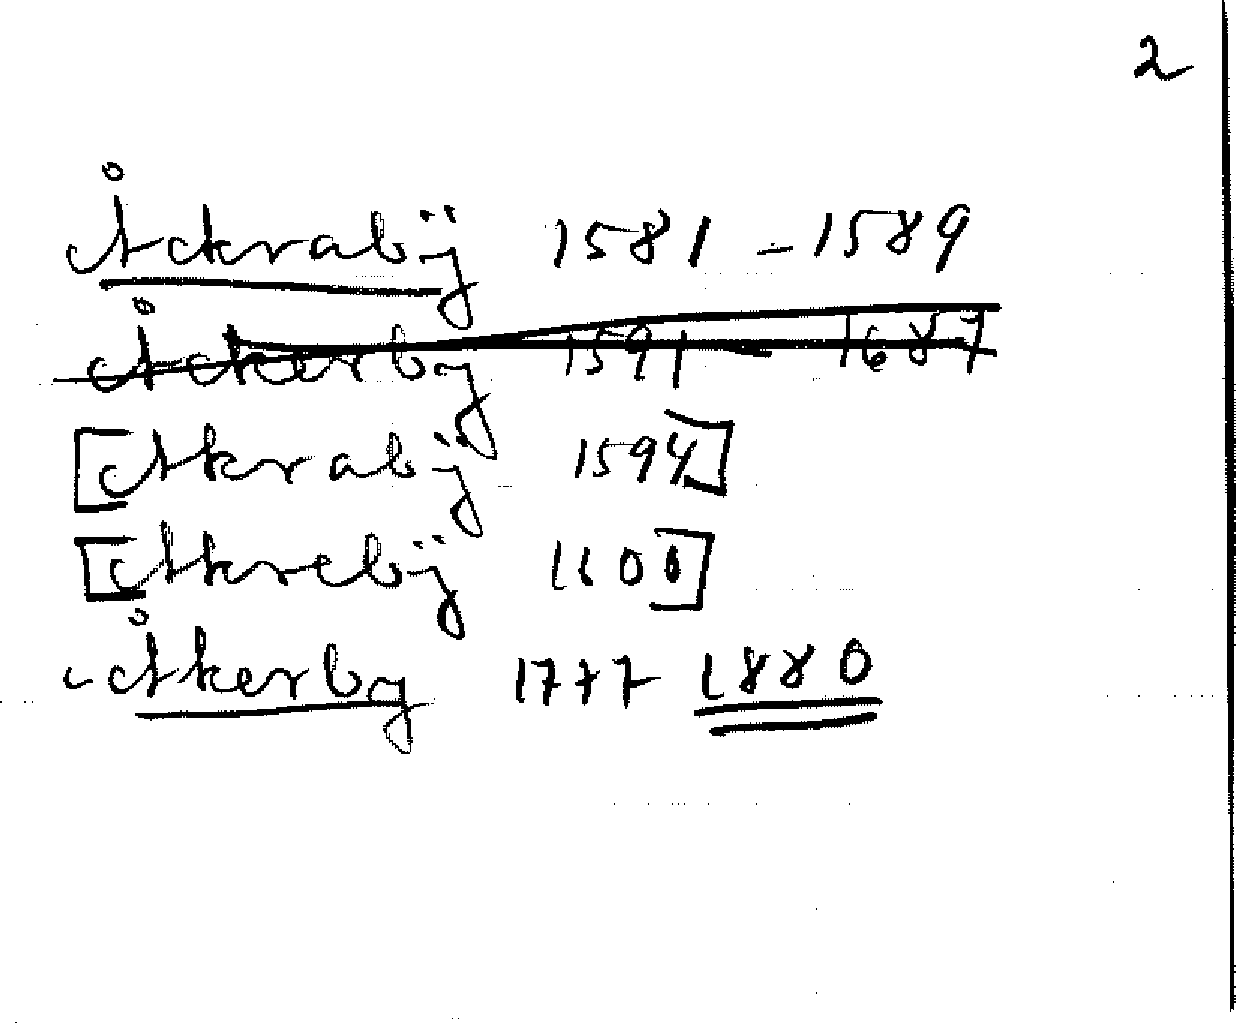 2
Åckrabÿ 1581 - 1589
Åckerby 1591 - 1687
[Akrabÿ 1594]
[Akrebÿ 1600]
Åkerby 1777 - 1880